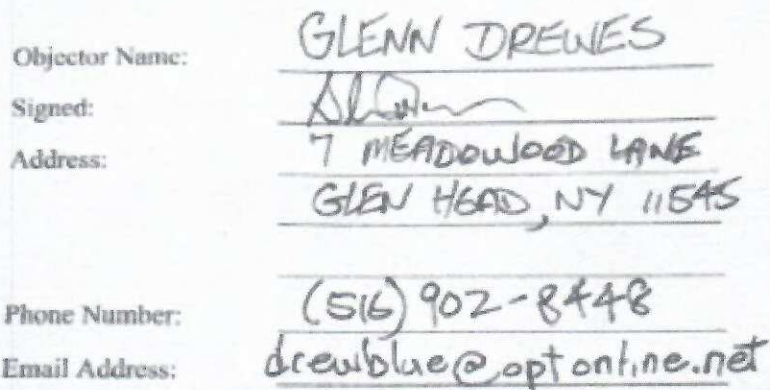 Objector Name: GLENN DREWES
Signed:
Address: 7 MEADOWOOD LANE
GLEN HEAD, NY 11545
Phone Number: (516) 902-8448
Email Address: drewblue@optonline.net